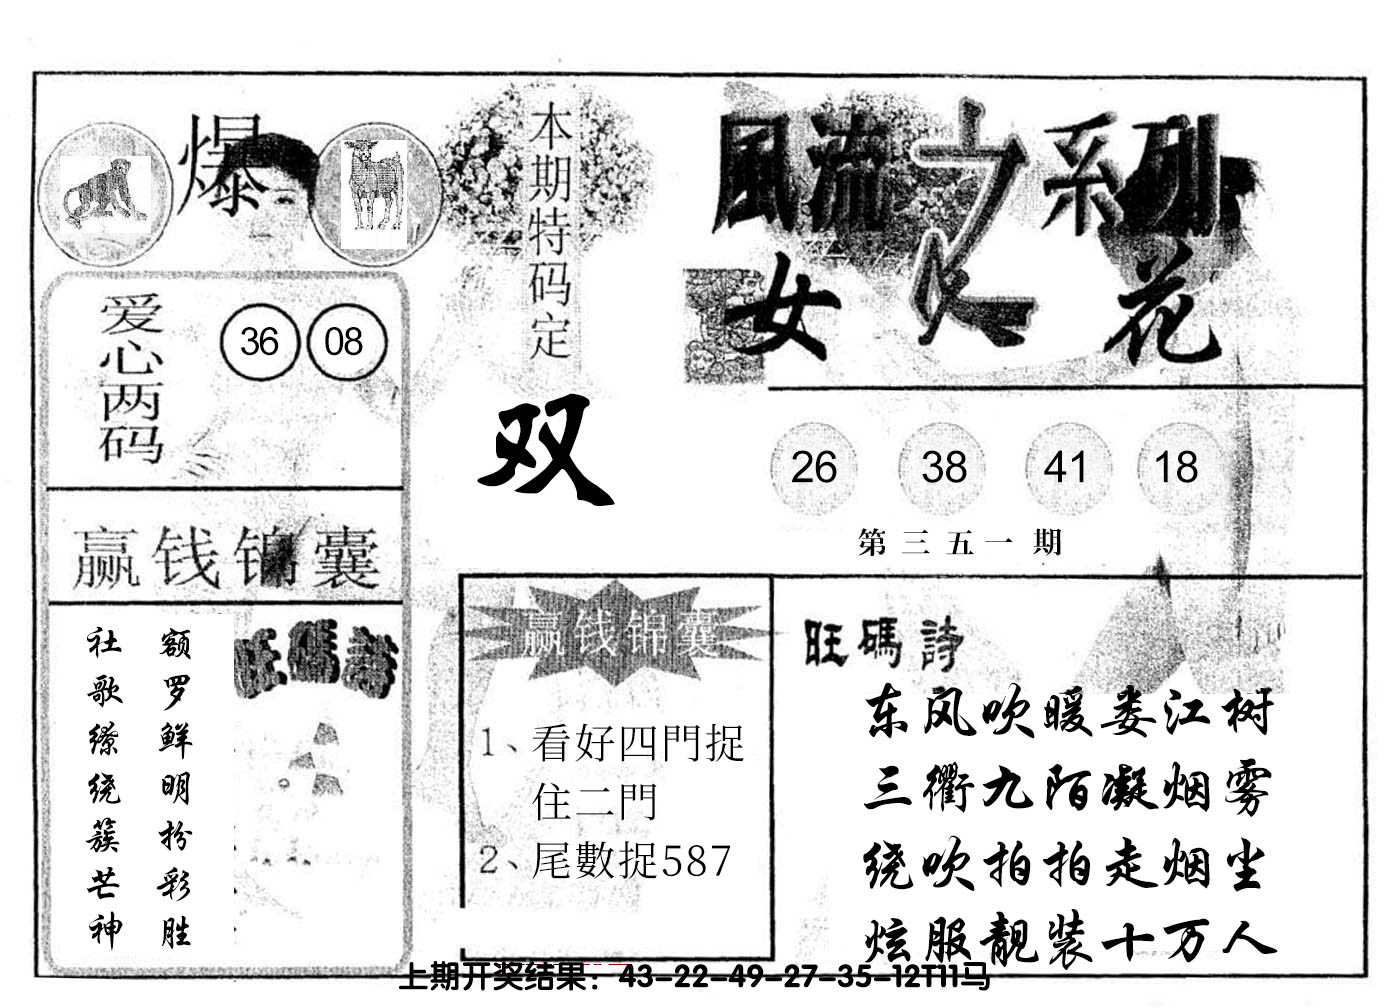 爆
本期特码定
双
風流之系列
女人花
爱心两码
36 08
26 38 41 18
第三五一期
赢钱锦囊
额罗鲜明扮彩胜
社歌缭绕簇芒神
旺碼詩
赢钱锦囊
1、看好四門捉
住二門
2、尾數捉587
旺碼詩
东风吹暖娄江树
三衢九陌凝烟雾
绕吹拍拍走烟尘
炫服靓装十万人
上期开奖结果：43-22-49-27-35-12T11马